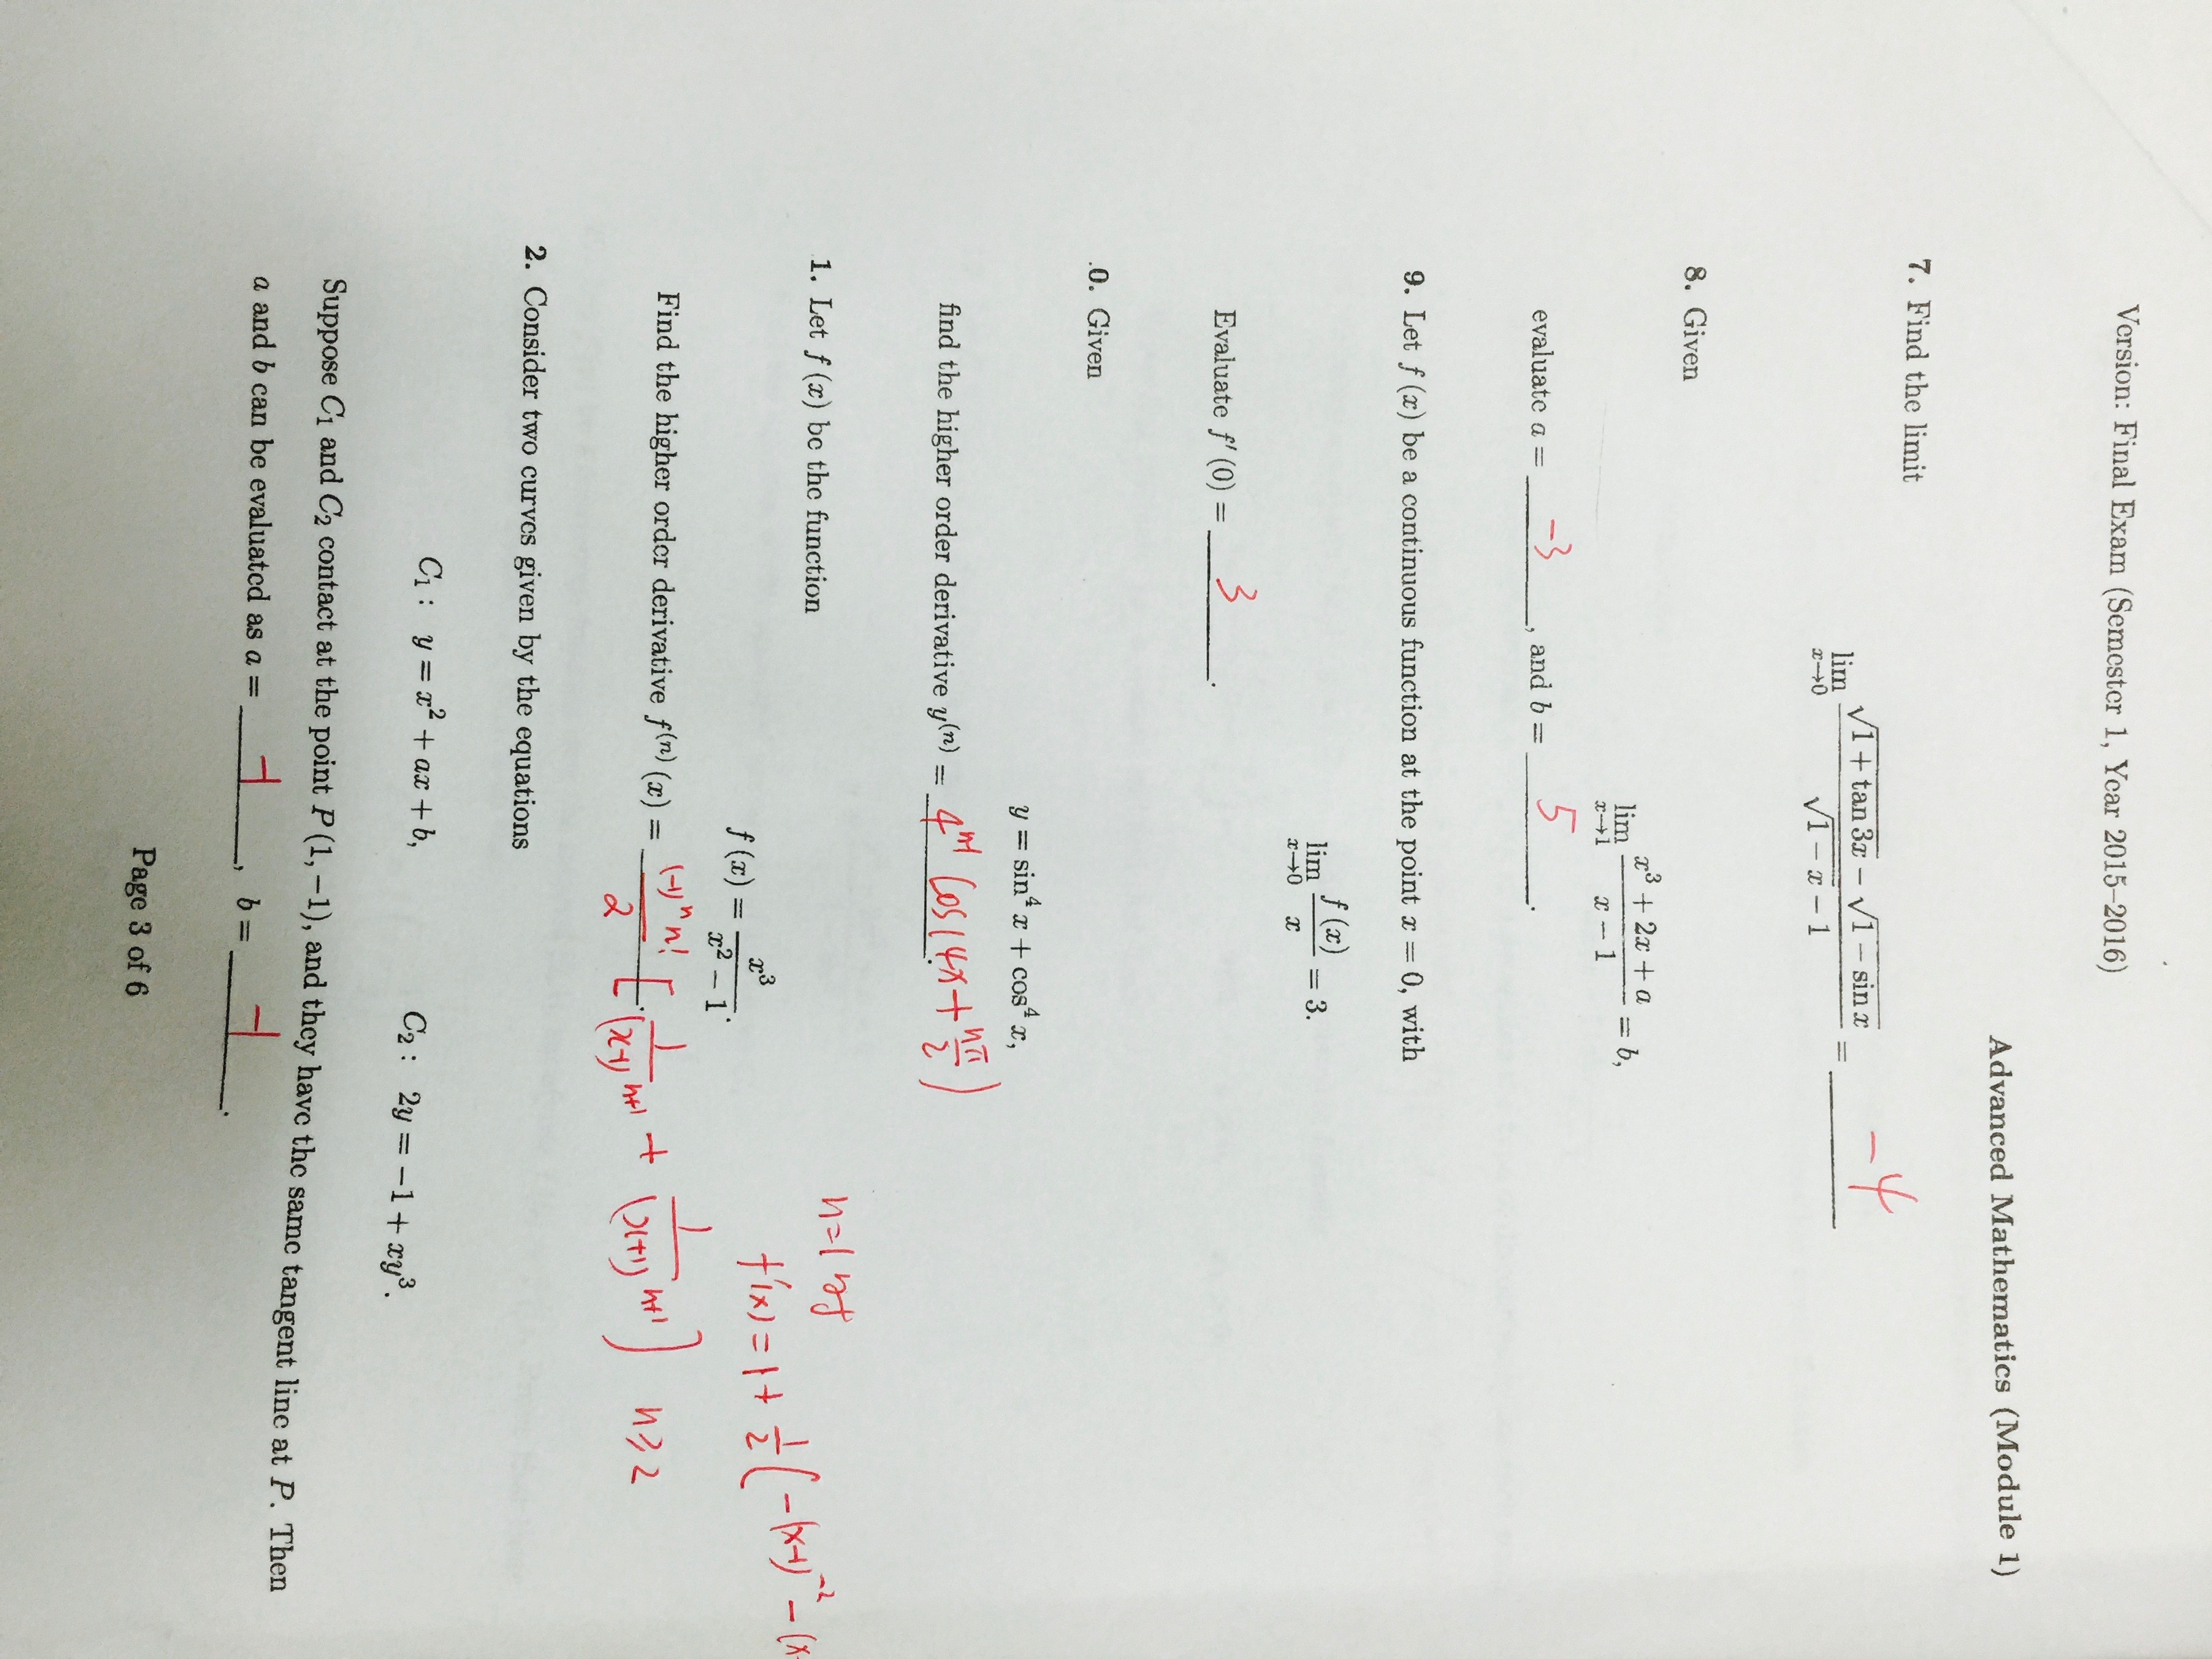 Version: Final Exam (Semester 1, Year 2015–2016)
Advanced Mathematics (Module 1)
7. Find the limit
lim_{x→0} (√(1 + tan 3x) − √(1 − sin x)) / (√(1 − x) − 1) = -4
8. Given
lim_{x→1} (x³ + 2x + a) / (x − 1) = b,
evaluate a = -3, and b = 5.
9. Let f (x) be a continuous function at the point x = 0, with
lim_{x→0} f (x) / x = 3.
Evaluate f′ (0) = 3.
.0. Given
y = sin⁴ x + cos⁴ x,
find the higher order derivative y⁽ⁿ⁾ = 4ⁿ⁻¹ cos(4x + nπ/2).
1. Let f (x) be the function
n=1 时
f (x) = x³ / (x² − 1).
f'(x) = 1 + 1/2 ( -(x-1)⁻² - (x
Find the higher order derivative f⁽ⁿ⁾ (x) = (-1)ⁿ n! / 2 [ 1/(x-1)ⁿ⁺¹ + 1/(x+1)ⁿ⁺¹ ] n ≥ 2
2. Consider two curves given by the equations
C₁ : y = x² + ax + b, C₂ : 2y = −1 + xy³.
Suppose C₁ and C₂ contact at the point P (1, −1), and they have the same tangent line at P. Then
a and b can be evaluated as a = -1, b = -1.
Page 3 of 6